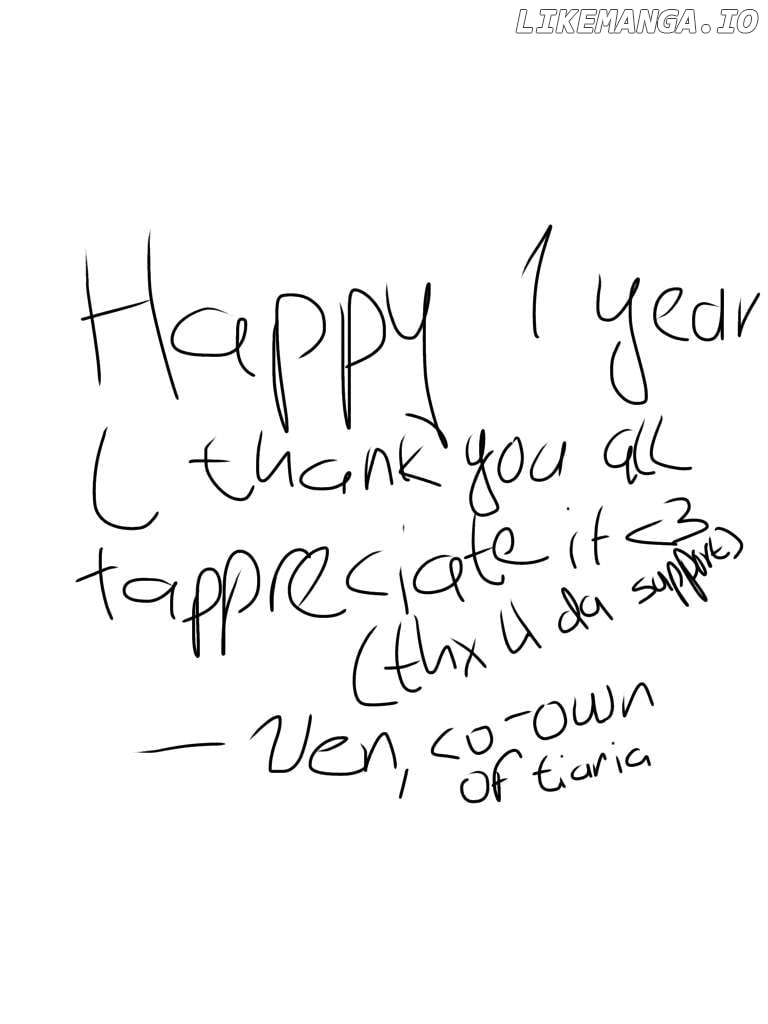 LIKEMANGA.IO
Happy 1 year
I thank you all
t appreciate it <3
(thx 4 da support)
— Ven, co-own
of tiaria